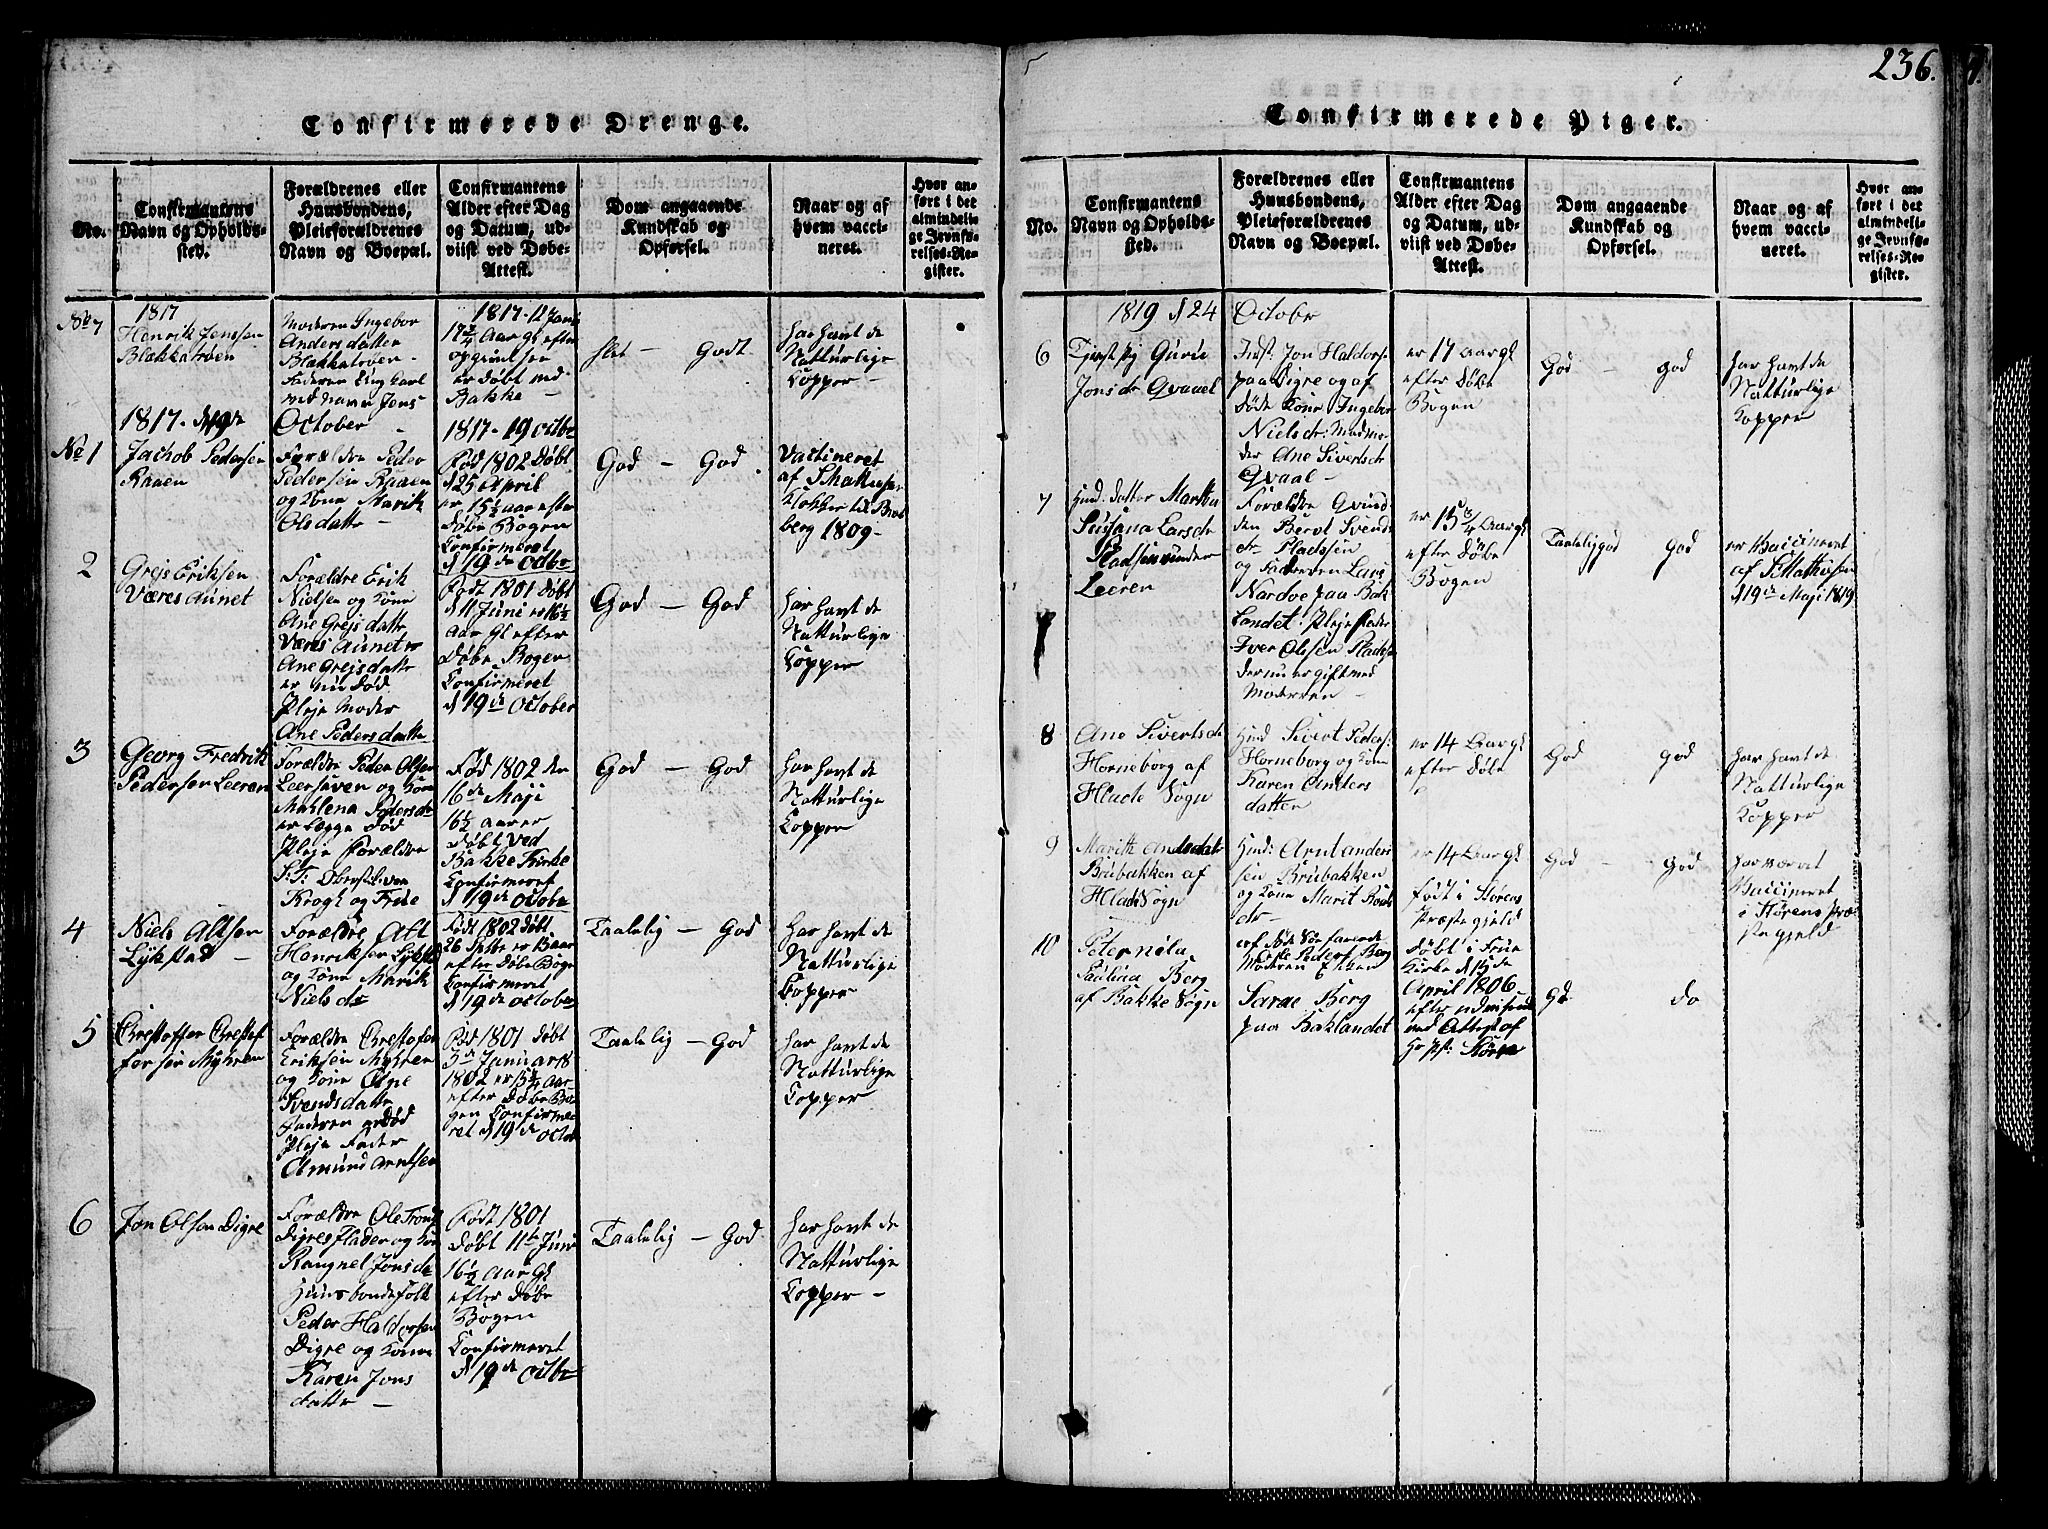 236.
Confirmerede Drenge.
No.
Confirmantens
Navn og Opholds-
sted.
Forældrenes eller
Huusbondens,
Pleieforældrenes
Navn og Boepæl.
Confirmantens
Alder efter Dag
og Datum, ud-
viist ved Døbe-
Attest.
Dom angaaende
Kundskab og
Opførsel.
Naar og af
hvem vacci-
neret.
Hvor an-
ført i det
almindeli-
ge Jevnfø-
relses-Re-
gister.
No 7
1817
Henrik Jenssen
Moderen Ingebor
Andersdatter
Faderen Ung karl
ved Navn Jens
1817 - 12 Juni
17 3/4 Aar gl efter
opgivelse
er Døbt ved
Bakke -
slet - Godt
har havt de
Natturlige
Copper -
1817. d 19de
October
1817 - 19 octbr
No 1
Jachob Pedersen
Raaen
Forældre Peder
Pedersen Raaen
og Kone Marith
Olsdattr -
Fød 1802 Døbt
d 25 April
er 15 1/2 aar efter
Døbe Bogen
Confirmeret
d 19de octbr
God - God
Vaccineret
af S Mathisen
klokker til
berg 1809 -
2
Grejs Eriksen
Væres Aunet
Forældre Erik
Nielsen og Kone
Ane Grejsdattr
Væres Aunet
Ane Grejsdattr
er nu død
Pleje Moder
Ane Pedersdattr
Født 1801 Døbt
d 11 Juni er 16 1/2
Aar Gl efter
Døbe Bogen
Confirmeret
d 19de October
God - God
har havt de
Natturlige
Copper
3
Georg Fredrik
Pedersen Leeren
Forældre Peder Olsen
Leersiven og Kone
Mahlena Pedersdr
er begge død
Pleje Forældre
S: T: Oberstl:
Krogh og Frue
Fød 1802 den
16de Maji
16 1/2 aar er
Døbt ved
Bakke Kirke
Confirmeret
d 19de octobr
God - God
har havt de
Natturlige
Copper
4
Niels Altsen
Lykstad -
Forældre Alt
Henriksen Lykstd
og Kone Marith
Nielsdr
Født 1802 Døbt
26 Sptbr er 15 aar
efter Døbe Bogn
Confirmeret
d 19de october
Taalelig - God
har havt de
Natturlige
Copper
5
Chrestoffer Chrestof
forsen Myhren
Forældre Chrestofer
Eriksen Myhren
og Kone Olne
Svendsdattr
Faderen er død
Pleje Fader
Amund Arntsen
Fød 1801 Døbt
5de Januar
1802 er 15 3/4 Aar
efter Døbe Bo
gen Confirme
ret d 19de octbr
Taalelig - God
har havt de
Natturlige
Copper
6
Jon Olsen Digre
Forældre Ole Trond
Digres Plader og Kone
Rangnel Jonsdr
Huusbondefolk
Peder Haldorsen
Digre og Kone
Karen Jons
dattr -
Født 1801
Døbt 11te Juni
16 1/2 Aar Gl
efter Døbe
Bogen
Confirmeret
d 19de octbr
Taalelig - God
har havt de
Natturlige
Copper -
Confirmerede Piger.
No.
Confirmantens
Navn og Opholds-
sted.
Forældrenes eller
Huusbondens,
Pleieforældrenes
Navn og Boepæl.
Confirmantens
Alder efter Dag
og Datum, ud-
viist ved Døbe-
Attest.
Dom angaaende
Kundskab og
Opførsel.
Naar og af
hvem vacci-
neret.
Hvor an-
ført i det
almindeli-
ge Jevnfø-
relses-Re-
gister.
1819 d 24
Octobr
6
Tjenst pig Guru
Jonsdr Qvaael
Inst: Jon Haldors:
paa Digre og af
døde Kone Ingebor
Nielsdr: Madmo
der Ane Sivertsdr
Qvaal -
er 17 Aar gl
efter Døbe
Bogen
God - God
har havt de
Natturlige
Copper
7
huusd: Datter Martha
Susana Larsdr
Pladsen under
Leeren
Forældre Qvind
den Berot Svends
dr Pladssen
og Faderen Lars
Nardoe paa Bak
Landet Pleje Fader
Iver Olssen Pladsen
der nu er gift med
Moderen -
er 15 3/4 Aar gl
efter Døbe
Bogen
Taalelig god God
er Vaccineret
af S Mathisen
d 19de Maji 1819
8
Ane Sivertsdr
Horneborg af
Hlade Sogn
huusd Sivert Peders:
Horneborg og Kone
Karen Anders
datter
er 14 Aar gl
efter Døbe
God God
har havt de
Natturlige
Copper
9
Marith Arntsdatr
Brubakken af
Hlade Sogn
huusd: Arnt Anders
sen Brubakken
og Kone Marit
dr -
er 14 Aar gl
født i Størens
Præstegjeld
God - God
har været
Vaccineret
i Størens Præ
stegjeld
10
Peternela
Paulina Berg
af Bakke Sogn
af døde
Peders: Berg
Moderen Enken
Sarae Berg
paa Baklandet
Døbt i Frue
Kirke d 15de
April 1806
efter udviisende
ved Attest af
Hr
Gd do